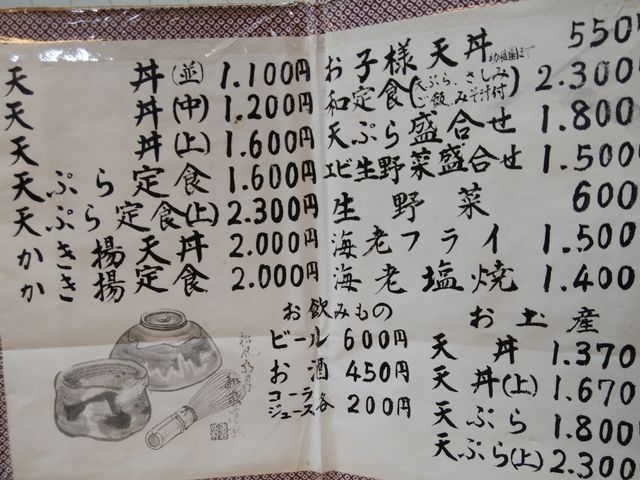 天丼(並) 1.100円
天丼(中) 1.200円
天丼(上) 1.600円
天ぷら定食 1.600円
天ぷら定食(上) 2.300円
かき揚天丼 2.000円
かき揚定食 2.000円
お子様天丼 550
和定食(天ぷら、さしみ ご飯、みそ汁付) 2.300
天ぷら盛合せ 1.800
エビ生野菜盛合せ 1.500
生野菜 600
海老フライ 1.500
海老塩焼 1.400
お飲みもの
ビール 600円
お酒 450円
コーラ
ジュース各 200円
お土産
天丼 1.370
天丼(上) 1.670
天ぷら 1.800
天ぷら(上) 2.300